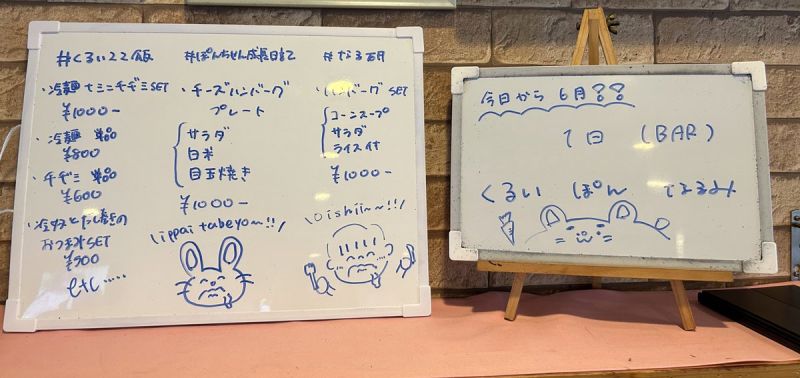 #くるい22飯
・冷麺ミニチヂミSET
¥1000-
・冷麺 単品
¥800
・チヂミ 単品
¥600
おつまみSET
¥500
etc.....
#ぽんちゃん成長日記
・チーズハンバーグ
プレート
サラダ
白米
目玉焼き
¥1000-
\ippai tabeyo~!!/
#なる
・ハンバーグSET
コーンスープ
サラダ
ライス付
¥1000-
\oishii~~!!/
今日から6月??
1日 (BAR)
くるい ぽん てるみ